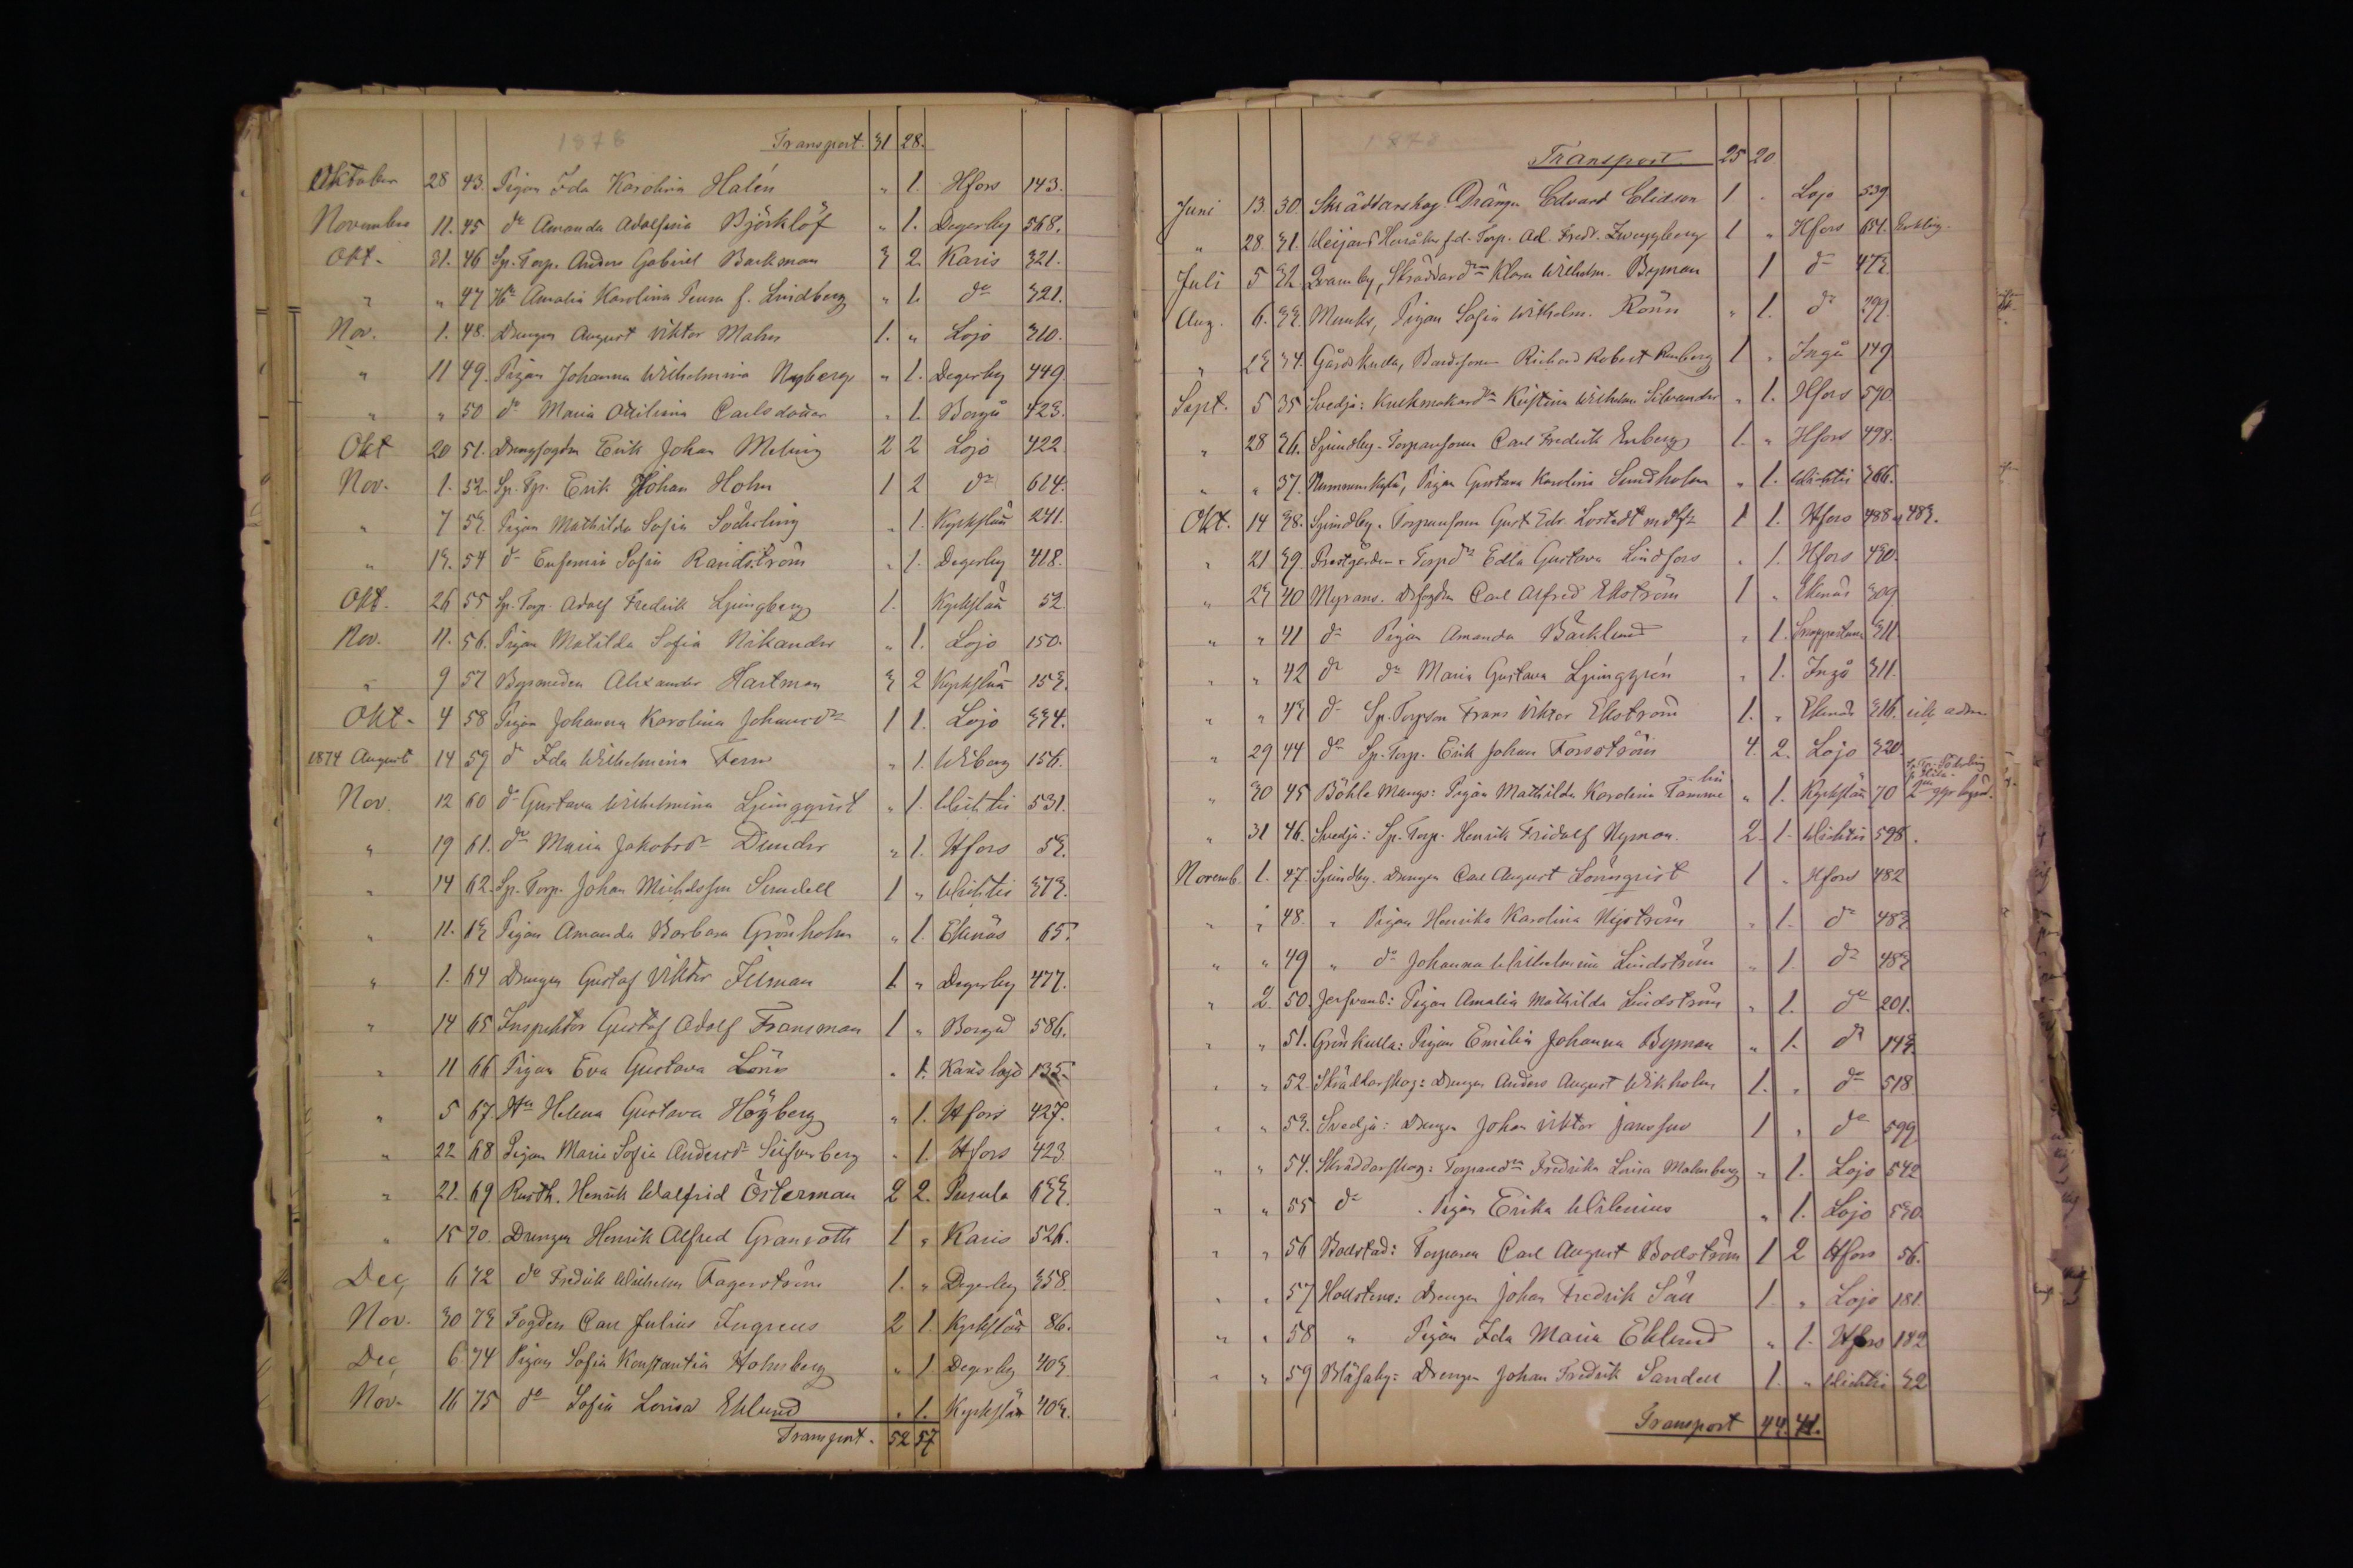 1878
Transport. 31 28.
Oktober 28 43. Pigan Ida Karolina Halén " 1. Hfors 143.
November 11. 45 do Amanda Adolfina Björklöf " 1. Degerby 568.
Okt. 31. 46 Sp. Torp. Anders Gabriel Backman 3 2. Karis 321.
" " 47 Amalia Karolina f. Lindberg " 1. do 321.
Nov. 1. 48. Drengen August Viktor Malm 1. " Lojo 310.
" 11 49. Pigan Johanna Wilhelmina Nyberg " 1. Degerby 449
" " 50 do Maria Carlsdotter " 1. Borgå 423.
Okt 20 51. Erik Johan Meling 2 2 Lojo 422
Nov. 1. 52. Sp. Tp. Erik Johan Holm 1 2 do 614.
" 7 53. Pigan Mathilda Sofia Söderling " 1. Kyrkslätt 241.
" 13. 54 do Eufemia Sofia Randström " 1. Degerby 418.
Okt. 26 55 Sp. Torp. Adolf Fredrik Ljungberg 1. Kyrkslätt 52
Nov. 11. 56. Pigan Matilda Sofia Nikander " 1. Lojo 150.
" 9 57 Bysmeden Alexander Hartman 3 2 Kyrkslätt 153.
Okt. 4 58 Pigan Johanna Karolina Johansdr 1 1. Lojo 334.
1874 Augusti 14 59 do Ida Wilhelmina Ferm " 1. Wiborg 156.
Nov. 12 60 do Gustava Wilhelmina Ljungqvist " 1. Wichtis 531.
" 19 61. do Maria Jakobsdr Dunder " 1. Hfors 53.
" 14 62. Sp. Torp. Johan Michelsson Sundell 1 " Wichtis 373.
" 11. 63 Pigan Amanda Barbara Grönholm " 1. Ekenäs 65.
" 1. 64 Drengen Gustaf Viktor Ilman 1. " Degerby 477.
" 14 65 Inspektor Gustaf Adolf Fransman 1 " Borgå 586.
" 11 66 Pigan Eva Gustava Lönn " 1. Karislojo 135.
" 5 67. Hu Helena Gustava Högberg " 1. Hfors 427.
" 22 68 Pigan Maria Sofia Andersdr Silfverberg " 1. Hfors 423
" 21. 69 Rusth. Henrik Walfrid Österman 2 2. Pusula 633.
" 15 70. Drengen Henrik Alfred Granroth 1 " Karis 526.
Dec. 6 72 do Fredrik Wilhelm Fagerström 1. " Degerby 358.
Nov. 30 73 Fogden Carl Julius Ingreus 2 1. Kyrkslätt 86.
Dec. 6 74 Pigan Sofia Konstantia Holmberg " 1. Degerby 403.
Nov. 16 75 do Sofia Lovisa Eklund " 1. Kyrkslätt 403.
Transport. 52 57
1878
Transport 25 20
Juni 13. 30. Skräddarskog. Drängen Edvard Elidson 1 " Lojo 539
" 28. 31. Torp. Ad. Fredr. Zweygberg 1 " Hfors 651.
Juli 5 32. Qvarnby, Skräddardrn Klara Wilhelm. Byman 1 do 473.
Aug. 6. 33. Munks, Pigan Sofia Wilhelm. Rönn " 1. do 299.
" 23 34. Gårdskulla, Bondesonen Richard Robert Renberg 1 " Ingå 149
Sept. 5 35 Svedja: Kristina Wilhelm. Silvander " 1. Hfors 590
" 28 36. Spindby. Torparsonen Carl Fredrik Enberg 1. " Hfors 498.
" " 37. Nummenkylä, Pigan Gustava Karolina Sundholm " 1. Wichtis 266.
Okt. 14 38. Spindby. Torparsonen Gust. Edv. Lostedt m. Hu 1 1. Hfors 488 o. 483.
" 21 39. Prestgården. Torpdr Edla Gustava Lindfors " 1. Hfors 430.
" 23 40 Myrans. Carl Alfred Ekström 1 " Ekenäs 309
" " 41 do Pigan Amanda Bäcklund " 1. Snappertuna 311.
" " 42 do do Maria Gustava Ljunggrén " 1. Ingå 311.
" " 43 do Sp. Torpson Frans Viktor Ekström 1. " Ekenäs 316.
" 29 44 do Sp. Torp. Erik Johan Forsström 4. 2. Lojo 320
" 30 45 Böhle Mangs: Pigan Mathilda Karolina Tammelin " 1. Kyrkslätt 70
" 31 46. Svedja: Sp. Torp. Henrik Fridolf Nyman. 2. 1. Wichtis 598.
Novemb. 1. 47. Spindby. Drengen Carl August Lönnqvist 1 " Hfors 482
" " 48. " Pigan Henrika Karolina Nyström " 1. do 483
" " 49 " do Johanna Wilhelmina Lindström " 1. do 483
" 2. 50. Jerfvans: Pigan Amalia Mathilda Lindström " 1. do 201.
" " 51. Grönkulla: Pigan Emilia Johanna Byman " 1. do 143.
" " 52. Skräddarskog: Drengen Anders August Wikholm 1. " do 518.
" " 53. Svedja: Drengen Johan Viktor Jansson 1 " do 599
" " 54. Skräddarskog: Torparedrn Fredrika Lovisa Malmberg " 1. Lojo 542
" " 55 do Pigan Erika Wilenius " 1. Lojo 530.
" " 56 Bollstad: Torparen Carl August Bollström 1 2 Hfors 56.
" " 57 Hollstens: Drengen Johan Fredrik Säll 1. " Lojo 181.
" " 58 " Pigan Ida Maria Eklund " 1. Hfors 182
" " 59 Blåsaby: Drengen Johan Fredrik Sandell 1. " Wichtis 32
Transport 44. 41.